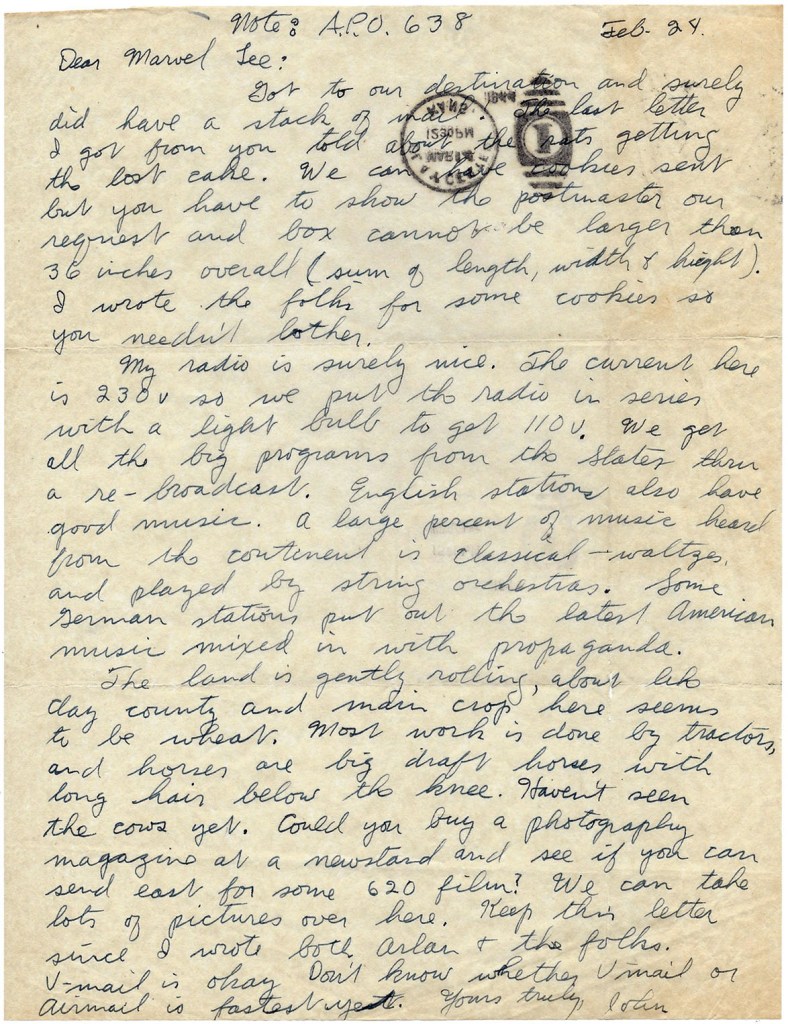 Note: A.P.O. 638 Feb. 24.
Dear Marvel Lee:
Got to our destination and surely
did have a stack of mail. The last letter
I got from you told about the rats getting
the lost cake. We can have cookies sent
but you have to show the postmaster our
request and box cannot be larger than
36 inches overall (sum of length, width & hight).
I wrote the folks for some cookies so
you needn't bother.
My radio is surely nice. The current here
is 230v so we put the radio in series
with a light bulb to get 110v. We get
all the big programs from the States thru
a re-broadcast. English stations also have
good music. A large percent of music heard
from the contenent is classical - waltzes,
and played by string orchestras. Some
German stations put out the latest American
music mixed in with propaganda.
The land is gently rolling, about like
Clay county and main crop here seems
to be wheat. Most work is done by tractors,
and horses are big draft horses with
long hair below the knee. Haven't seen
the cows yet. Could you buy a photography
magazine at a newstand and see if you can
send east for some 620 film? We can take
lots of pictures over here. Keep this letter
since I wrote both Arlan & the folks.
V-mail is okay Don't know whether V-mail or
Airmail is fastest yet. Yours truly, John